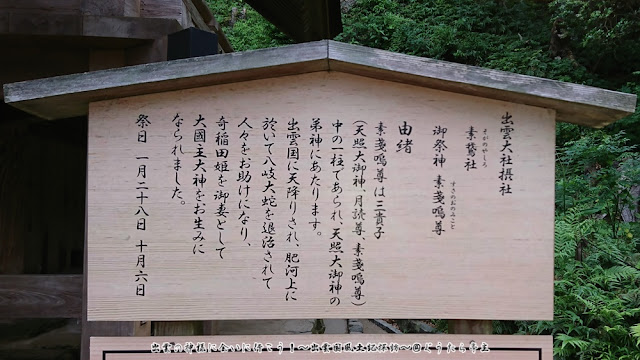 出雲大社摂社
素鵞社
そがのやしろ
御祭神 素戔嗚尊
すさのおのみこと
由緒
素戔嗚尊は三貴子
(天照大御神、月読尊、素戔嗚尊)
中の一柱であられ、天照大御神の
弟神にあたります。
出雲国に天降りされ、肥河上に
於いて八岐大蛇を退治されて
人々をお助けになり、
奇稲田姫を御妻として
大國主大神をお生みに
なられました。
祭日 一月二十八日 十月六日
出雲の神様に会いに行こう!~出雲国風土記探訪~@どうたら亭主